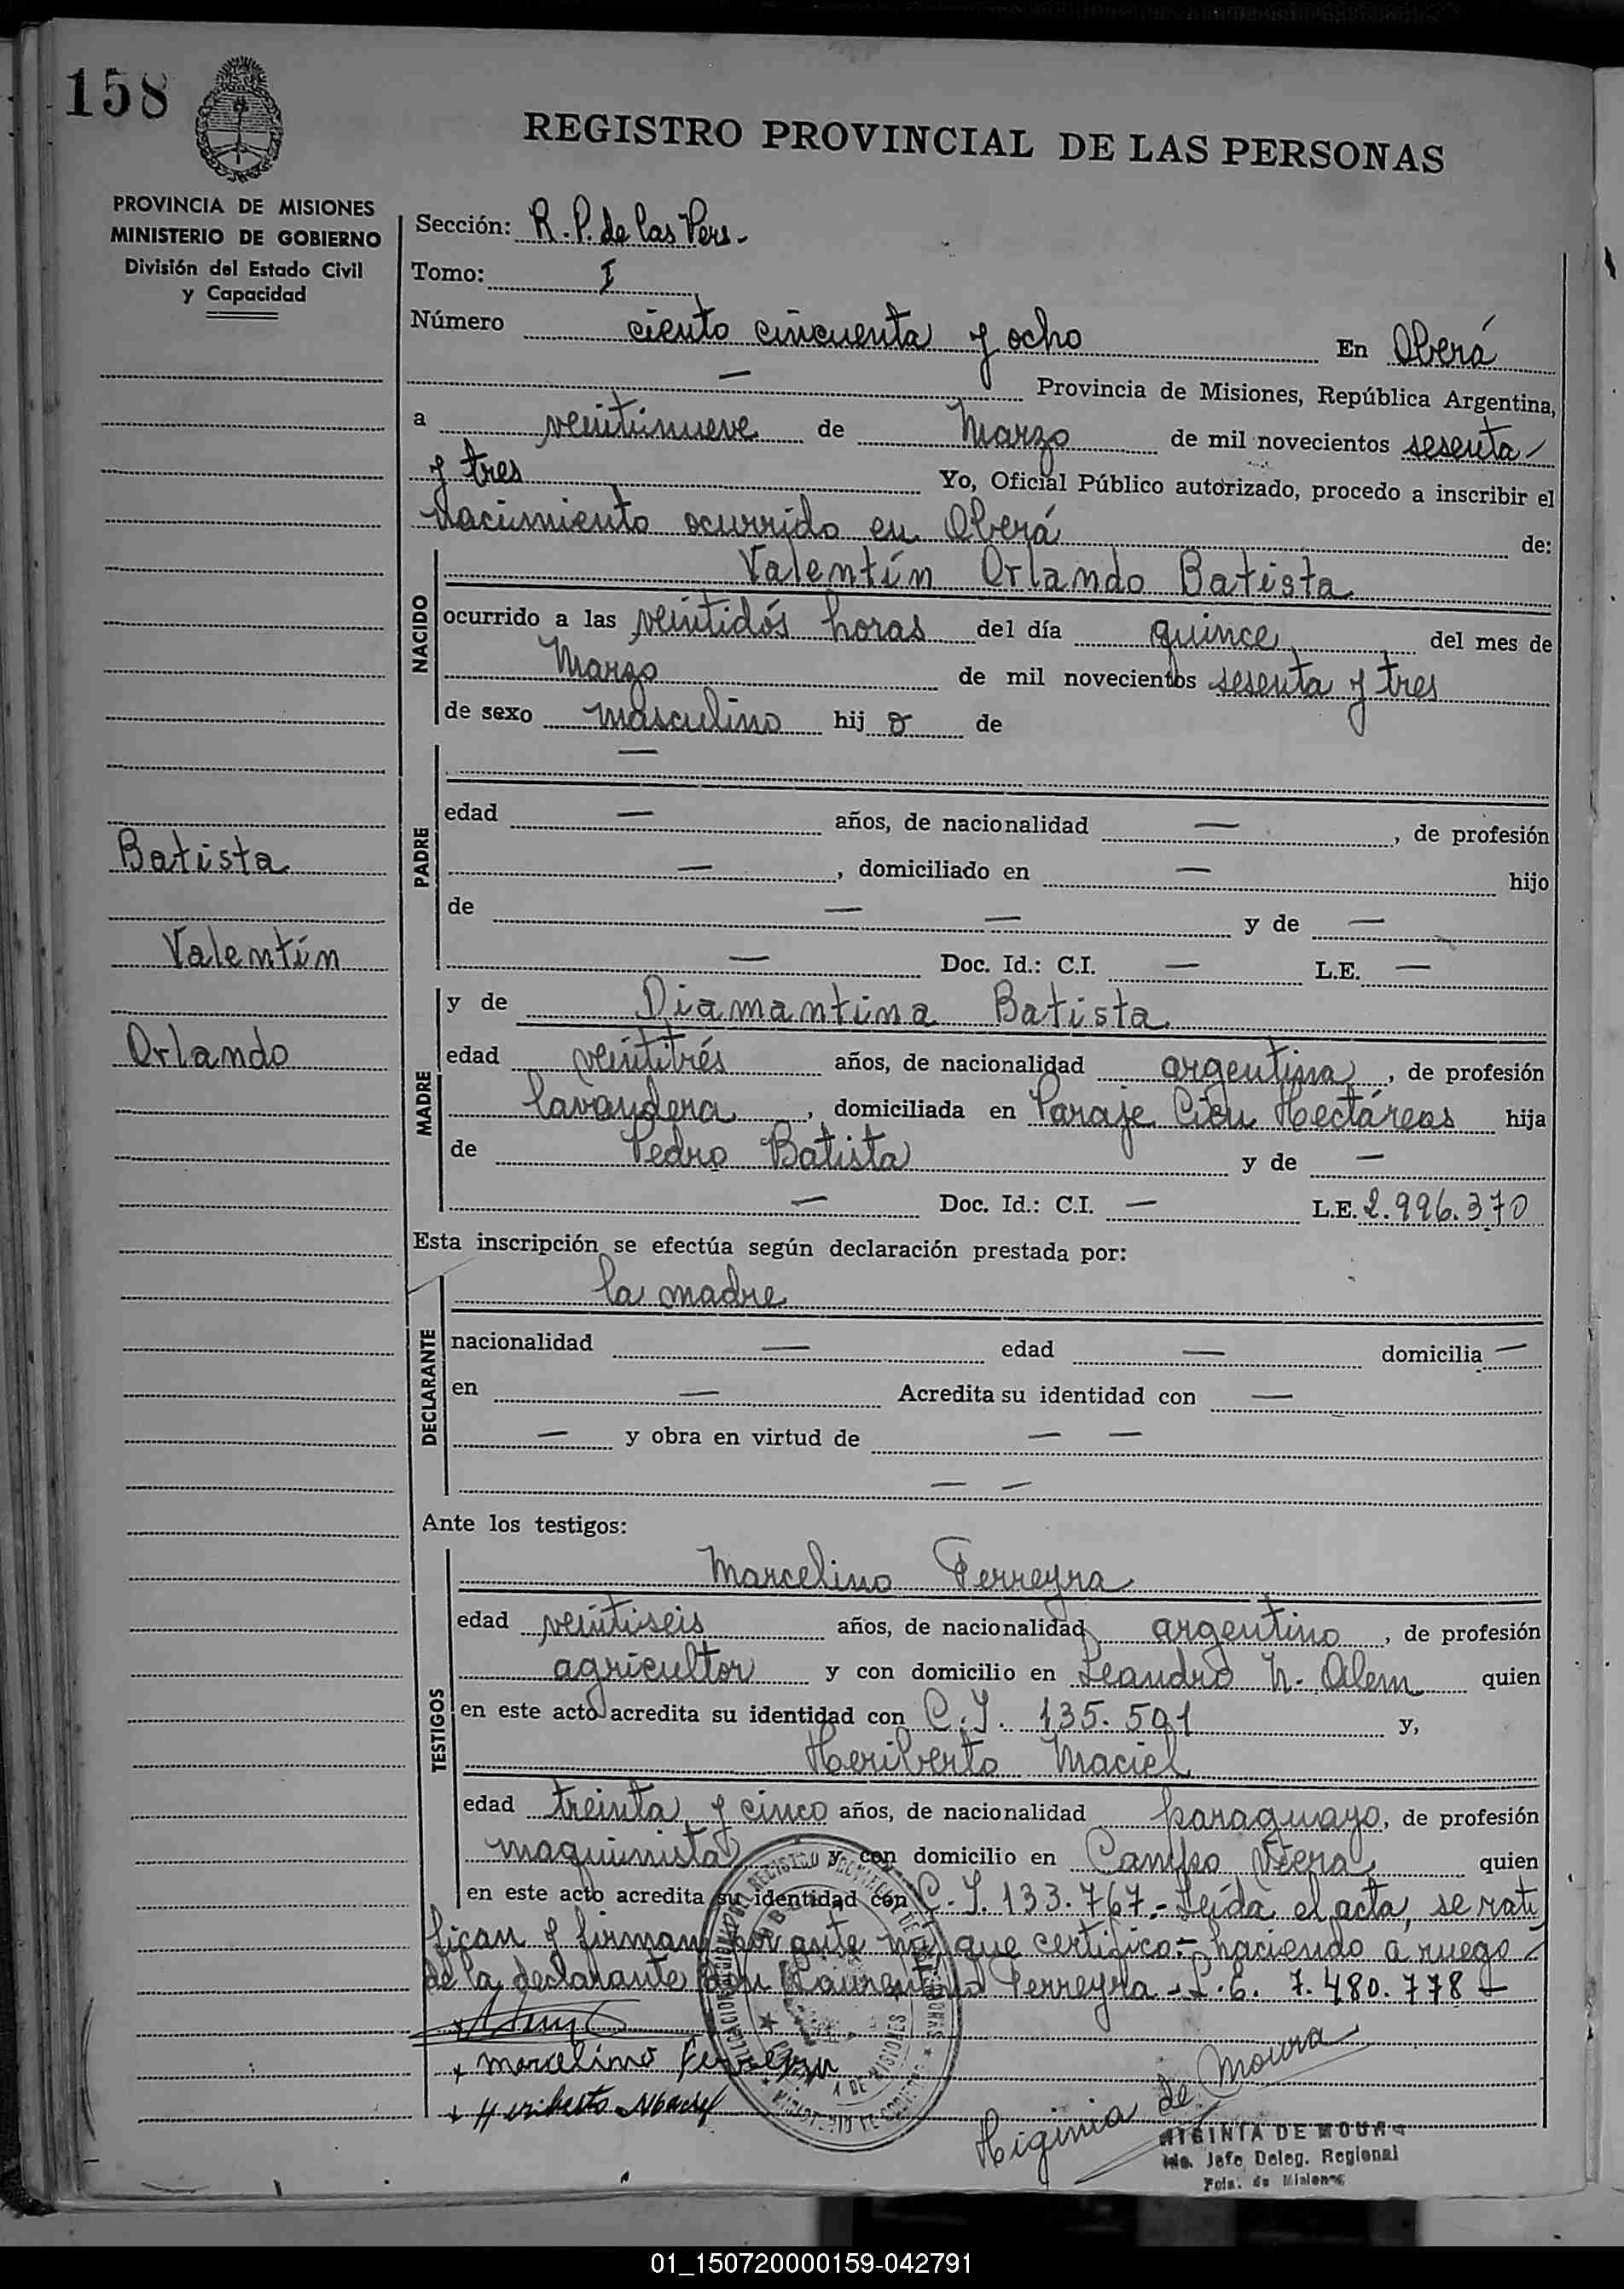 158
REGISTRO PROVINCIAL DE LAS PERSONAS
PROVINCIA DE MISIONES
MINISTERIO DE GOBIERNO
División del Estado Civil
y Capacidad
Sección: R. P. de las Pers.-
Tomo: I
Número ciento cincuenta y ocho En Oberá
— Provincia de Misiones, República Argentina,
a veintinueve de Marzo de mil novecientos sesenta
y tres Yo, Oficial Público autorizado, procedo a inscribir el
nacimiento ocurrido en Oberá de:
NACIDO
Valentín Orlando Batista
ocurrido a las veintidós horas del día quince del mes de
Marzo de mil novecientos sesenta y tres
de sexo masculino hij o de
PADRE
—
edad — años, de nacionalidad — , de profesión
— , domiciliado en — hijo
de — — y de —
— Doc. Id.: C.I. — L.E. —
Batista
Valentín
Orlando
MADRE
y de Diamantina Batista
edad veintitrés años, de nacionalidad argentina , de profesión
lavandera , domiciliada en Paraje Cien Hectáreas hija
de Pedro Batista y de —
— Doc. Id.: C.I. — L.E. 2.996.370
Esta inscripción se efectúa según declaración prestada por:
DECLARANTE
la madre
nacionalidad — edad — domicilia —
en — Acredita su identidad con —
— y obra en virtud de — —
— —
Ante los testigos:
TESTIGOS
Marcelino Ferreyra
edad veintiseis años, de nacionalidad argentino , de profesión
agricultor y con domicilio en Leandro N. Alem quien
en este acto acredita su identidad con C.I. 135.591 y,
Heriberto Maciel
edad treinta y cinco años, de nacionalidad paraguayo , de profesión
maquinista y con domicilio en Campo Viera quien
en este acto acredita su identidad con C.I. 133.767.- Leída el acta, se rati
fican y firman por ante mí, que certifico.- haciendo a ruego
de la declarante don Laurentino Ferreyra - L.E. 7.480.778 -
x marcelino Ferreyra
x Heriberto Maciel
Higinia de Moura
HIGINIA DE MOURA
Jefe Deleg. Regional
Pcia. de Misiones
01_150720000159-042791